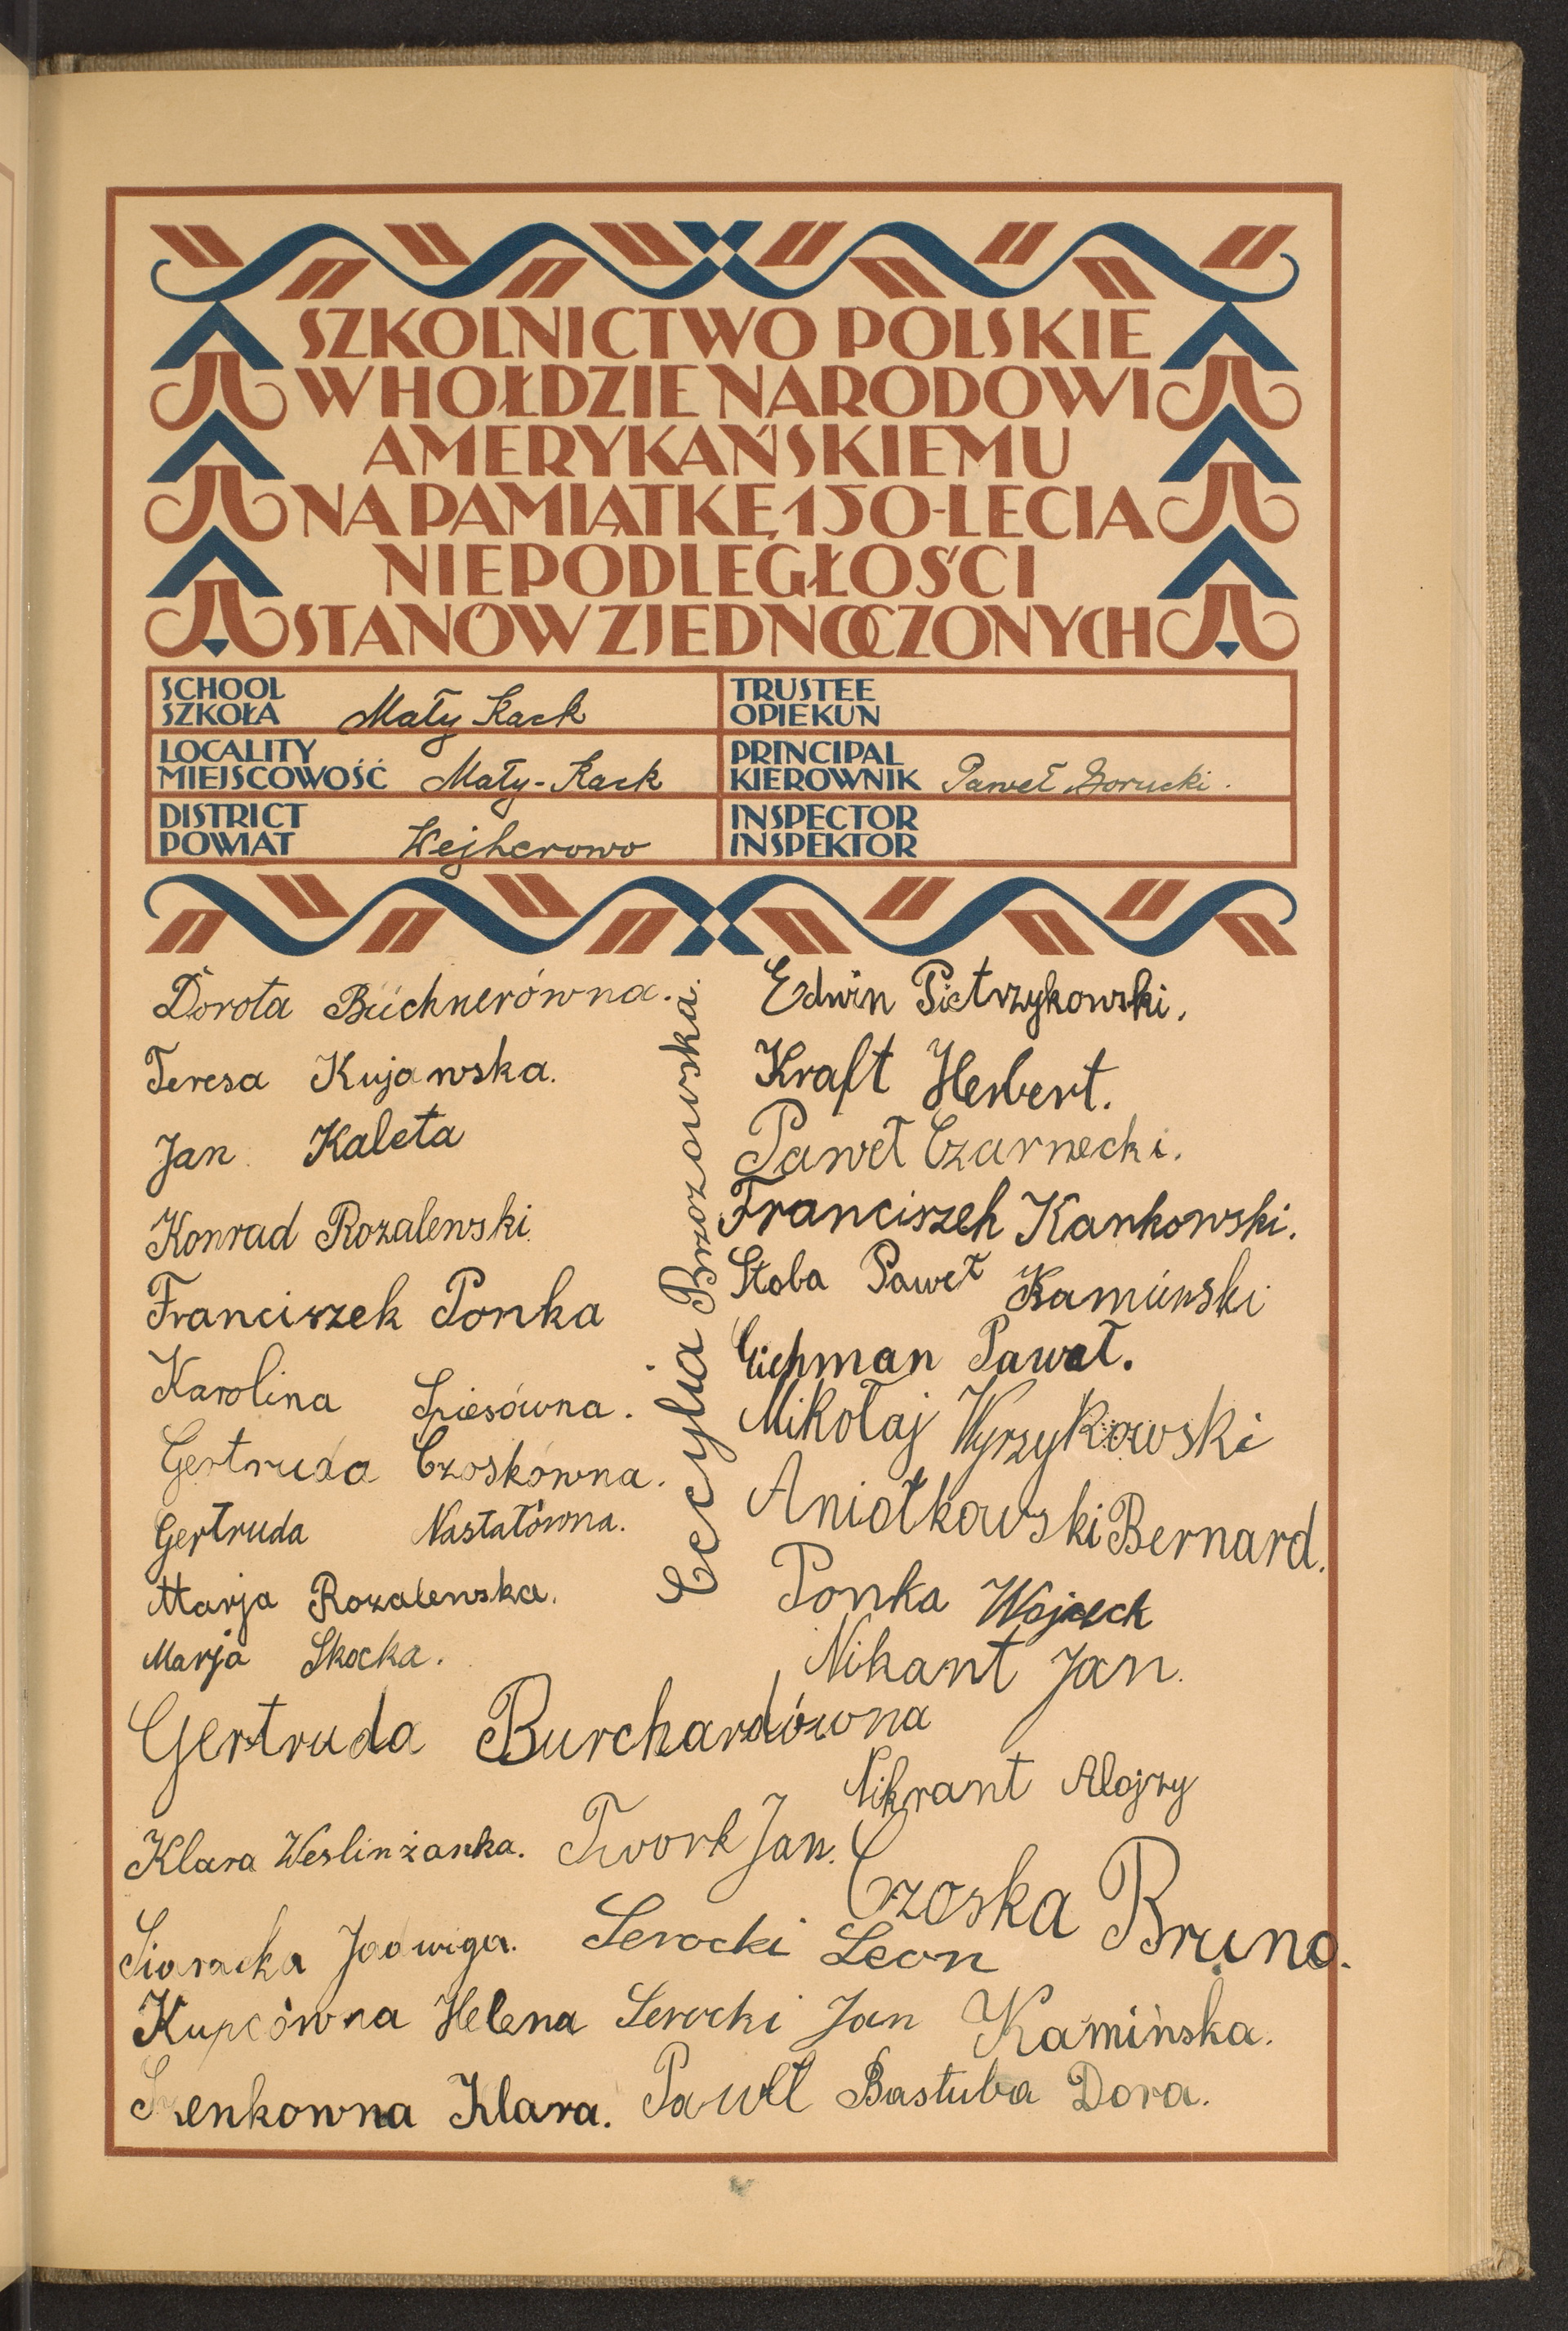 SZKOLNICTWO POLSKIE
W HOŁDZIE NARODOWI
AMERYKAŃSKIEMU
NA PAMIĄTKĘ 150-LECIA
NIEPODLEGŁOŚCI
STANÓW ZJEDNOCZONYCH
SCHOOL
SZKOŁA Mały Kack
TRUSTEE
OPIEKUN
LOCALITY
MIEJSCOWOŚĆ Mały-Kack
PRINCIPAL
KIEROWNIK Paweł
DISTRICT
POWIAT Wejherowo
INSPECTOR
INSPEKTOR
Dorota Büchnerówna.
Teresa Kujawska.
Jan Kaleta
Konrad Rozalewski.
Franciszek Ponka
Karolina Spiesówna.
Gertruda Czoskówna.
Gertruda Nastałówna.
Marja Rozalewska.
Marja Skocka.
Gertruda Burchardówna
Klara Weslinżanka.
Jadwiga.
Kupcówna Helena
Klara.
Cecylia Brzozowska.
Edwin Pietrzykowski.
Kraft Herbert.
Paweł Czarnecki.
Franciszek Kankowski.
Stoba Paweł Kamiński
Eichman Paweł.
Mikołaj Wyrzykowski
Aniołkowski Bernard.
Ponka
Nikrant Jan.
Nikrant Alojzy
Twork Jan.
Czoska Bruno.
Serocki Leon
Serocki Jan Kamińska.
Paweł Bastuba Dora.